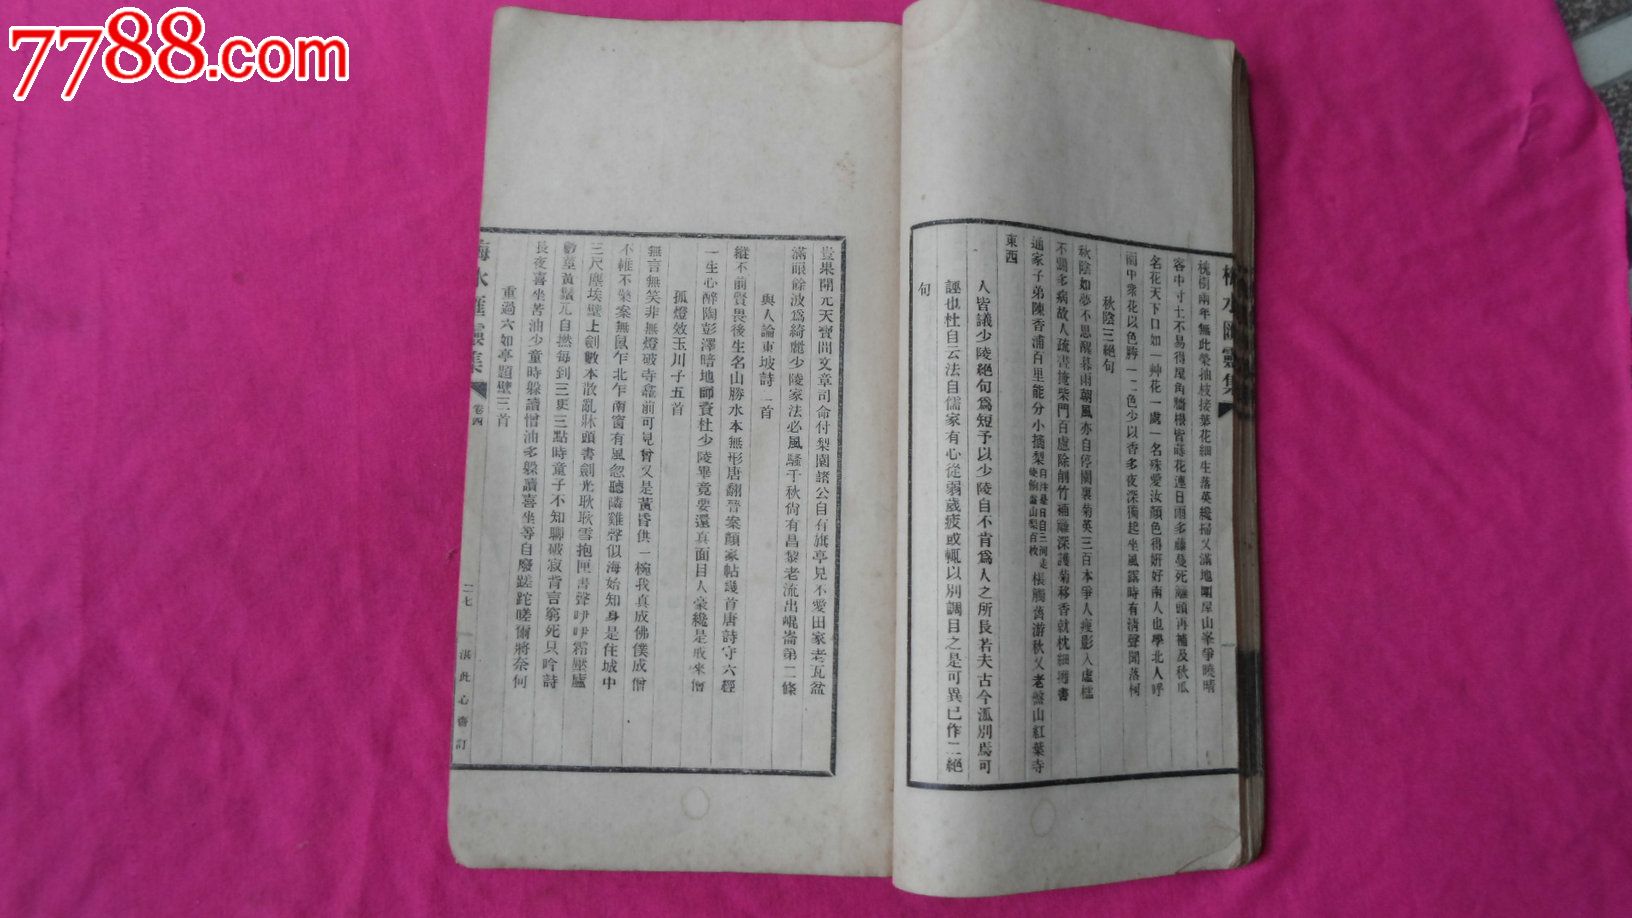 7788.com
槐樹兩年無此榮抽枝接葉花細生落英纔掃又滿地屋山峯爭曉晴
客中寸土不易得屋角牆根皆蒔花連日雨多藤蔓死離頭再補及秋瓜
名花天下口如一艸花一處一名殊愛汝顏色得妍好南人也學北人呼
雨中衆花以色勝一二色少以香多夜深獨起坐風露時有淸聲聞落柯
秋陰三絕句
秋陰如夢不思醒暮雨朝風亦自停闌裏菊英三百本爭人瘦影入虛櫺
不關多病故人疏晝掩柴門百慮除削竹補離深護菊移香就枕細攤書
通家子弟陳香浦百里能分小摘梨
悵觸舊游秋又老盤山紅葉寺
東西
人皆議少陵絕句爲短予以少陵自不肯爲人之所長若夫古今派別焉可
誣也杜自云法自儒家有心從弱歲疲或輒以別調目之是可異已作二絕
句
豈果開元天寶間文章司命付梨園諸公自有旗亭見不愛田家老瓦盆
滿眼餘波爲綺麗少陵家法必風騷千秋尙有昌黎老流出崐崙第二條
與人論東坡詩二首
縱不前賢畏後生名山勝水本無形唐翻晉案顏家帖幾首唐詩守六經
一生心醉陶彭澤暗地師資杜少陵畢竟要還眞面目人豪纔是戒來僧
孤燈效玉川子五首
無言無笑非無燈破寺龕前可見曾又是黃昏供一椀我眞成佛僕成僧
不雖不檠案無鼠乍北乍南窗有風忽聽隣雞聲似海始知身是住城中
三尺塵埃壁上劍數本散亂牀頭書劍光耿耿雪抱匣書聲咿咿霜壓廬
數莖黃鬚兀自撚每到三更三點時童子不知聊破寂肯言窮死只吟詩
長夜喜坐苦油少童時躲讀憎油多躲讀喜坐等自廢蹉跎嗟爾將奈何
重過六如亭題壁三首
卷四
二七
湛此心齋訂